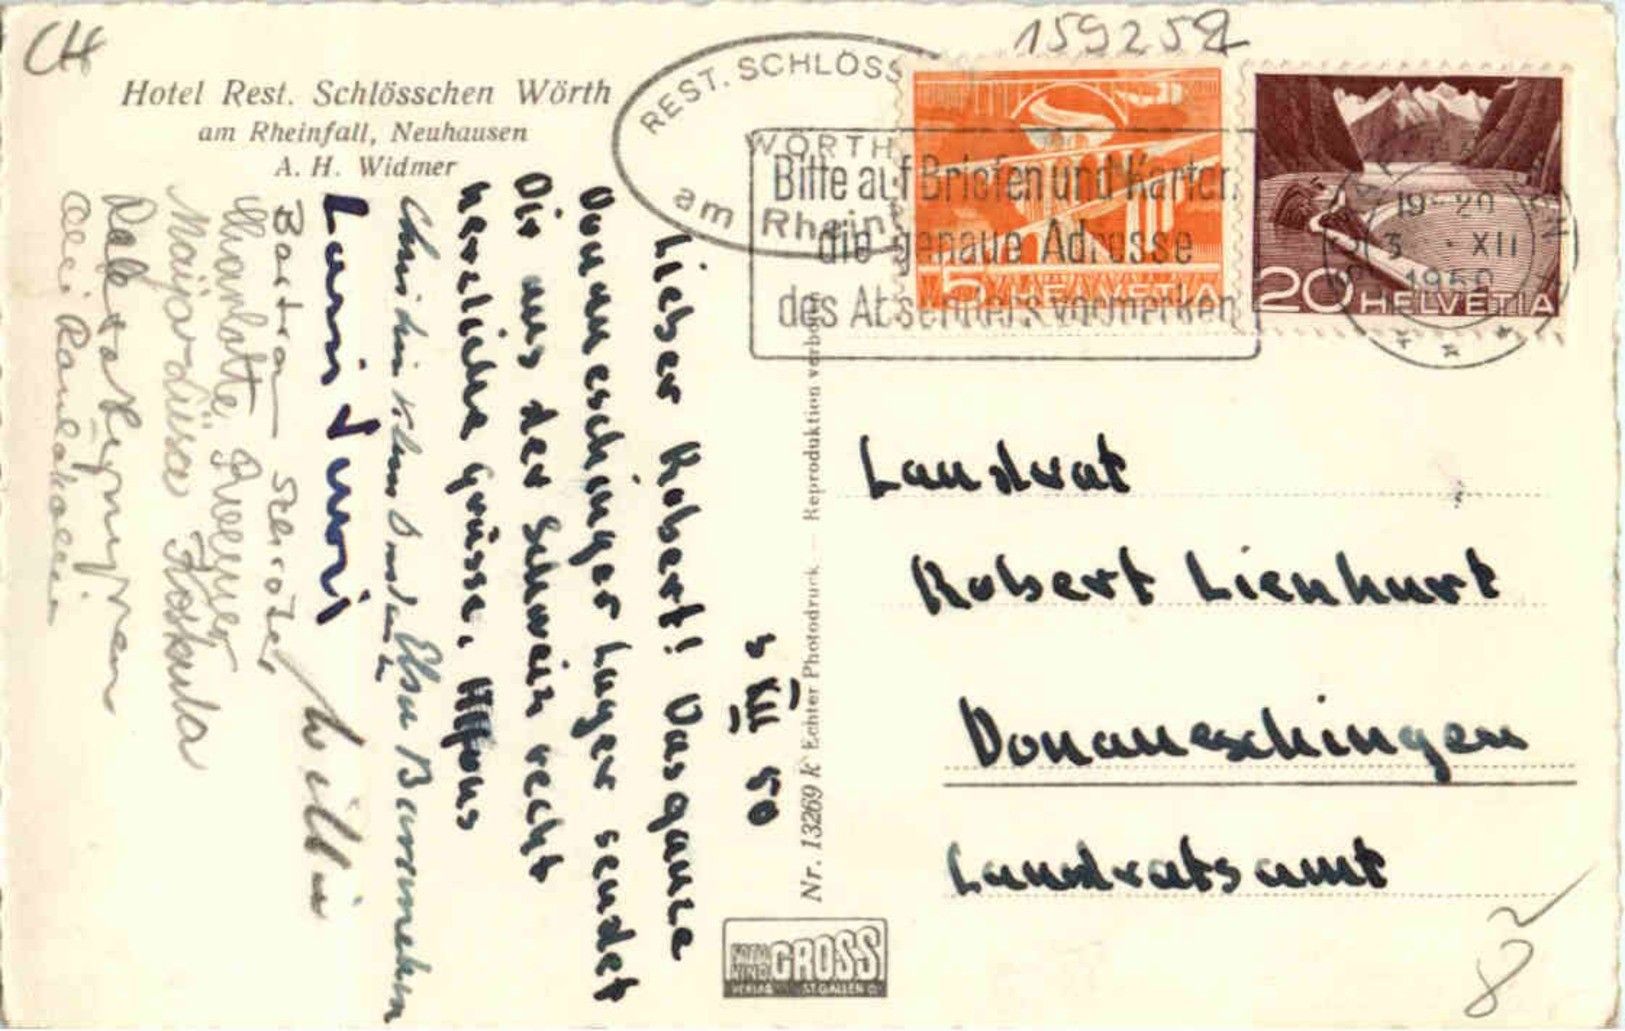 CH
159252
Hotel Rest. Schlösschen Wörth
am Rheinfall, Neuhausen
A. H. Widmer
REST. SCHLÖSS
WÖRTH
am Rheinf
Bitte auf Briefen und Karten
die genaue Adresse
des Absenders vermerken
5 HELVETIA
20 HELVETIA
19-20
3. XII
1950
3 XII 50
Lieber Robert! Das ganze
Donaueschinger Lager sendet
Dir aus der Schweiz recht
herzliche Grüsse. Alfons
Elsa
Lauri Juori
Bertram Schröder, Willi
Charlotte
Maija-Liisa Koskula
Nr. 13269 K Echter Photodruck — Reproduktion verboten
Landrat
Robert Lienhart
Donaueschingen
Landratsamt
FOTO GROSS
VERLAG ST. GALLEN O
82